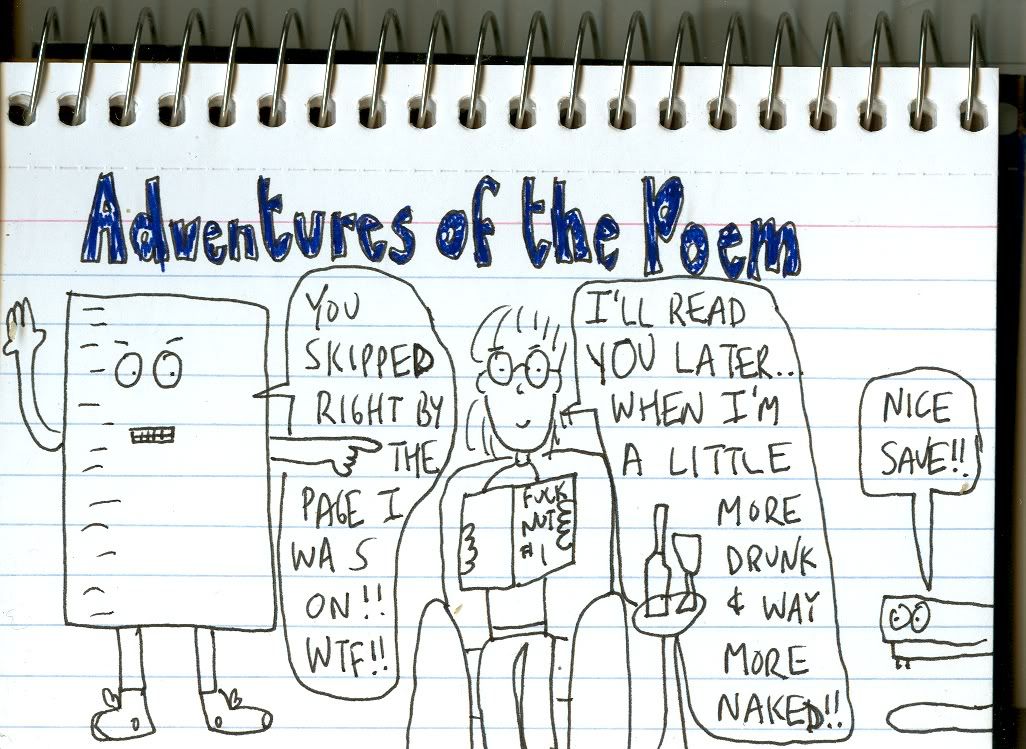 Adventures of the Poem
YOU
SKIPPED
RIGHT BY
THE
PAGE I
WAS
ON!!
WTF!!
FUCK
NUT
#1
I'LL READ
YOU LATER...
WHEN I'M
A LITTLE
MORE
DRUNK
& WAY
MORE
NAKED!!
NICE
SAVE!!